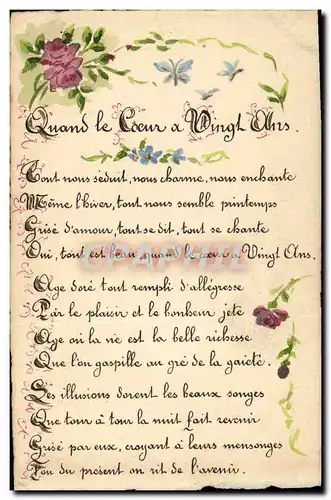 Quand le Cœur a Vingt Ans.
Tout nous séduit, nous charme, nous enchante
Même l'hiver, tout nous semble printemps
Grisé d'amour, tout se dit, tout se chante
Oui, tout est beau, quand le cœur a Vingt Ans.
Age doré tout rempli d'allégresse
Par le plaisir et le bonheur jeté
Age où la vie est la belle richesse
Que l'on gaspille au gré de la gaieté.
Les illusions dorent les beaux songes
Que tour à tour la nuit fait revenir
Grisé par eux, croyant à leurs mensonges
Fou du présent on rit de l'avenir.